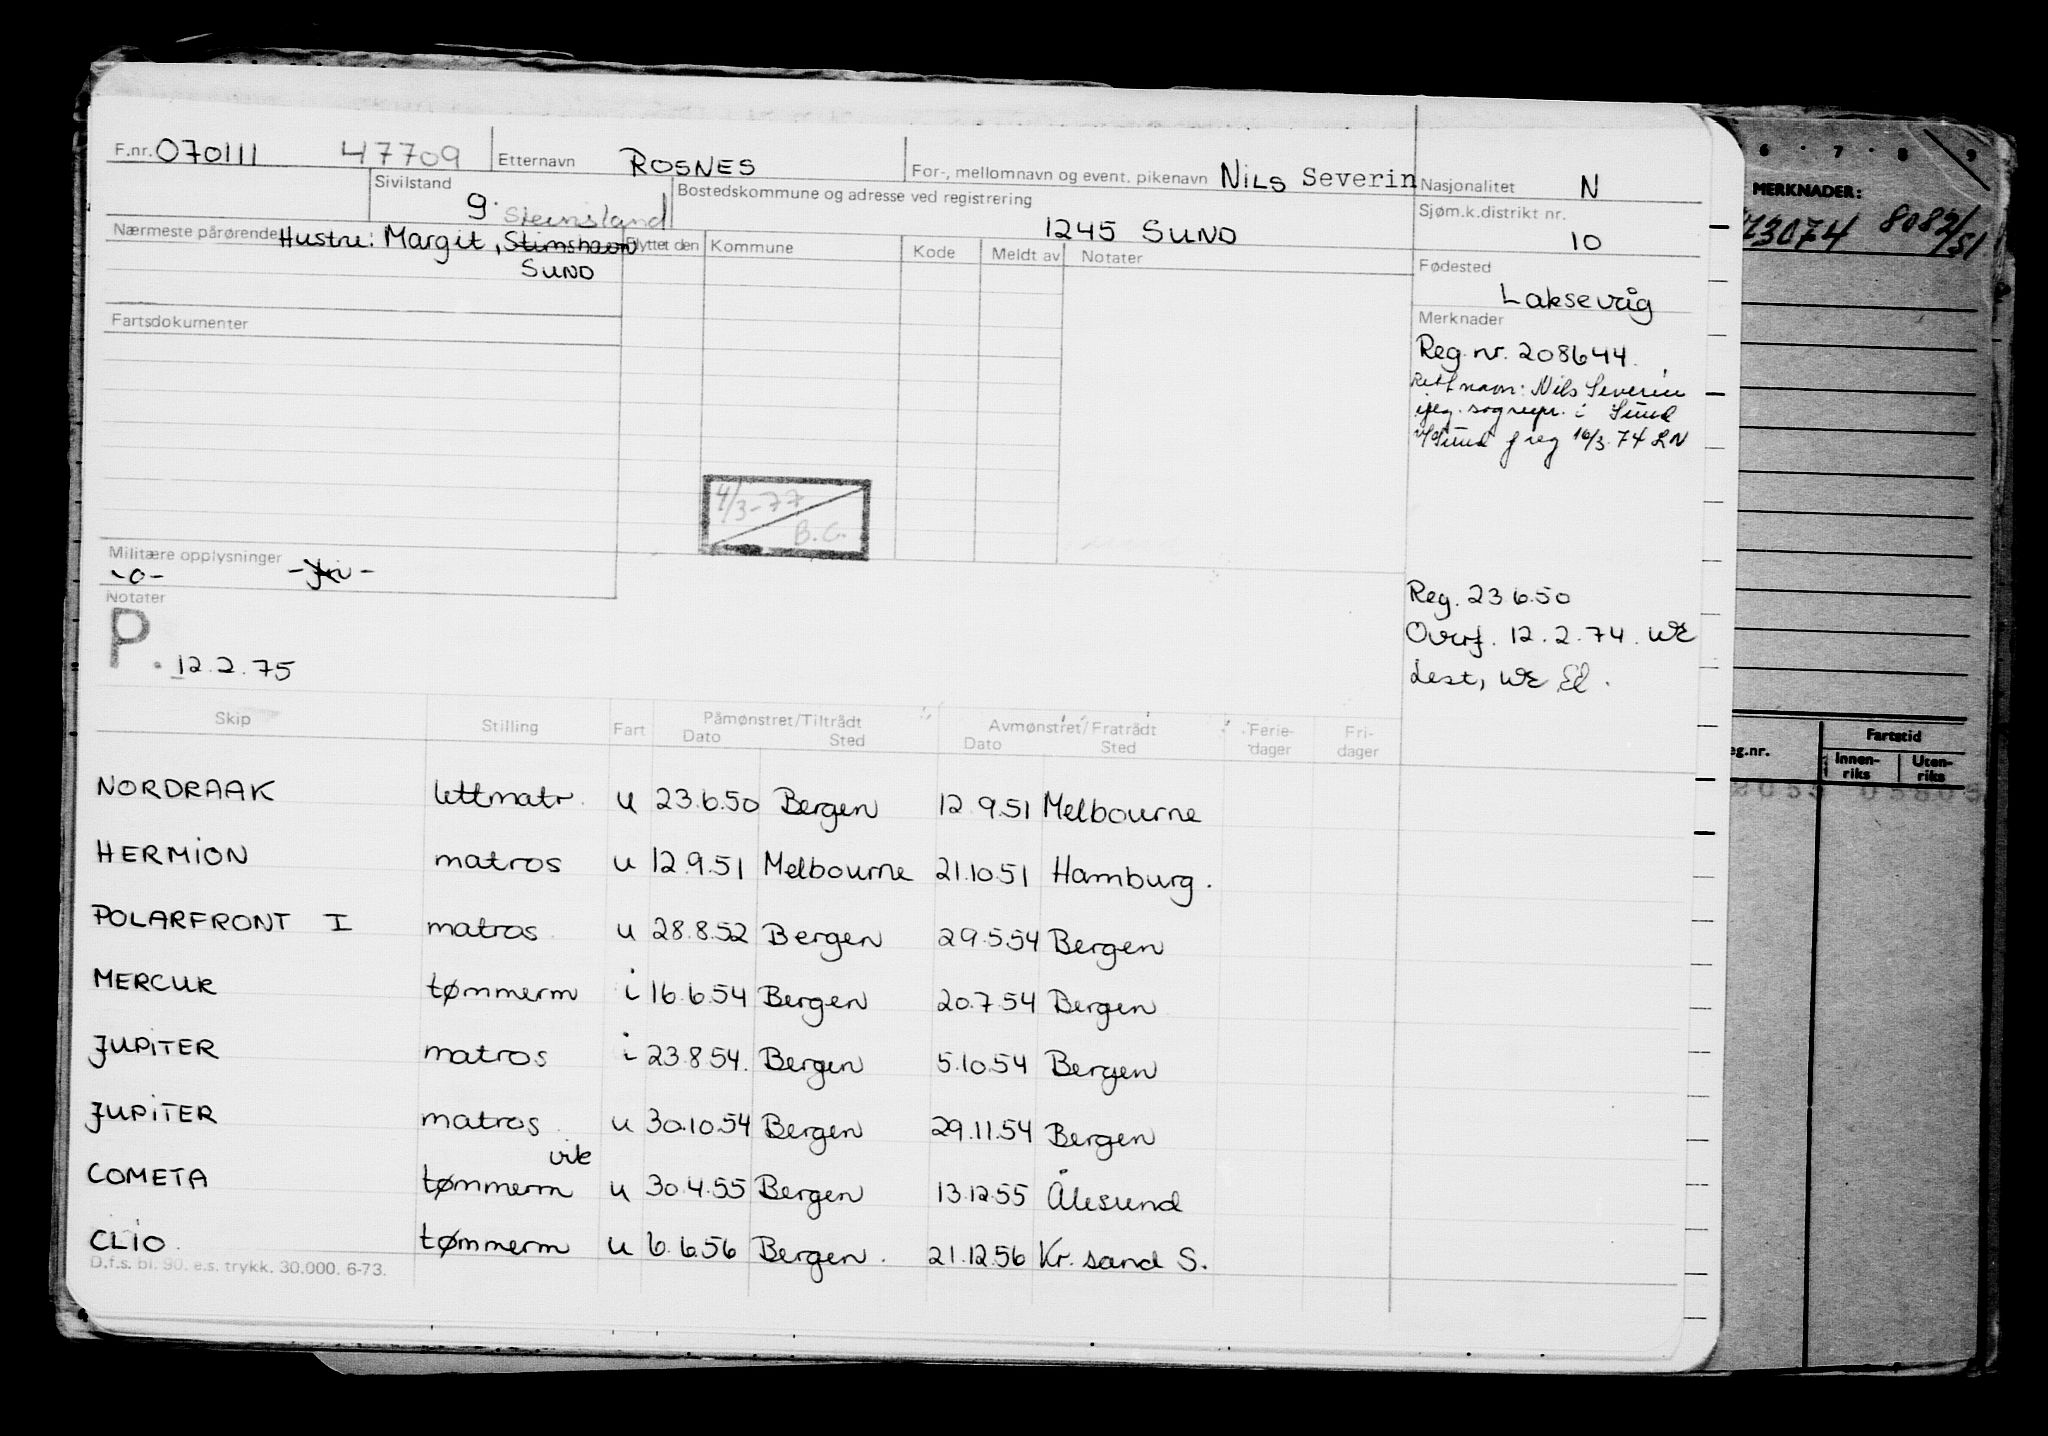 F.nr. 070111 47709 Etternavn ROSNES For-, mellomnavn og event. pikenavn NILS Severin Nasjonalitet N
Sivilstand g. Bostedskommune og adresse ved registrering 1245 SUND Sjøm.k.distrikt nr. 10
Steinsland
Nærmeste pårørende Hustru: Margit, Stimshavn Flyttet den Kommune Kode Meldt av Notater Fødested
SUND Laksevåg
Fartsdokumenter Merknader
Reg. nr. 208644.
Rett navn: Nils Severin
i Sund
Sund f reg 16/3.74 LN
4/3-77
B.C.
Militære opplysninger
-o-
Notater
P. 12.2.75
Reg. 23.6.50
Overf. 12.2.74. WE
Lest, WE El.
Skip Stilling Fart Påmønstret/Tiltrådt Avmønstret/Fratrådt Ferie-dager Fri-dager
Dato Sted Dato Sted
NORDRAAK lettmatr. u 23.6.50 Bergen 12.9.51 Melbourne
HERMION matros u 12.9.51 Melbourne 21.10.51 Hamburg.
POLARFRONT I matros u 28.8.52 Bergen 29.5.54 Bergen
MERCUR tømmerm i 16.6.54 Bergen 20.7.54 Bergen
JUPITER matros i 23.8.54. Bergen 5.10.54 Bergen
JUPITER matros u 30.10.54 Bergen 29.11.54 Bergen
vik
COMETA tømmerm u 30.4.55 Bergen 13.12.55 Ålesund
CLIO tømmerm u 6.6.56 Bergen. 21.12.56 Kr. sand S.
D.f.s. bl. 90. e.s. trykk. 30.000. 6-73.
6 7 8 9
MERKNADER:
73074 8082/51
eg.nr. Fartstid
Innen-riks Uten-riks